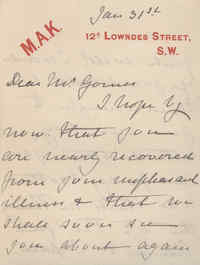 Jan 31st
M.A.K.
12A LOWNDES STREET,
S.W.
Dear Mr
I hope by
now that you
are nearly recovered
from your unpleasant
illness & that we
shall soon see
you about again